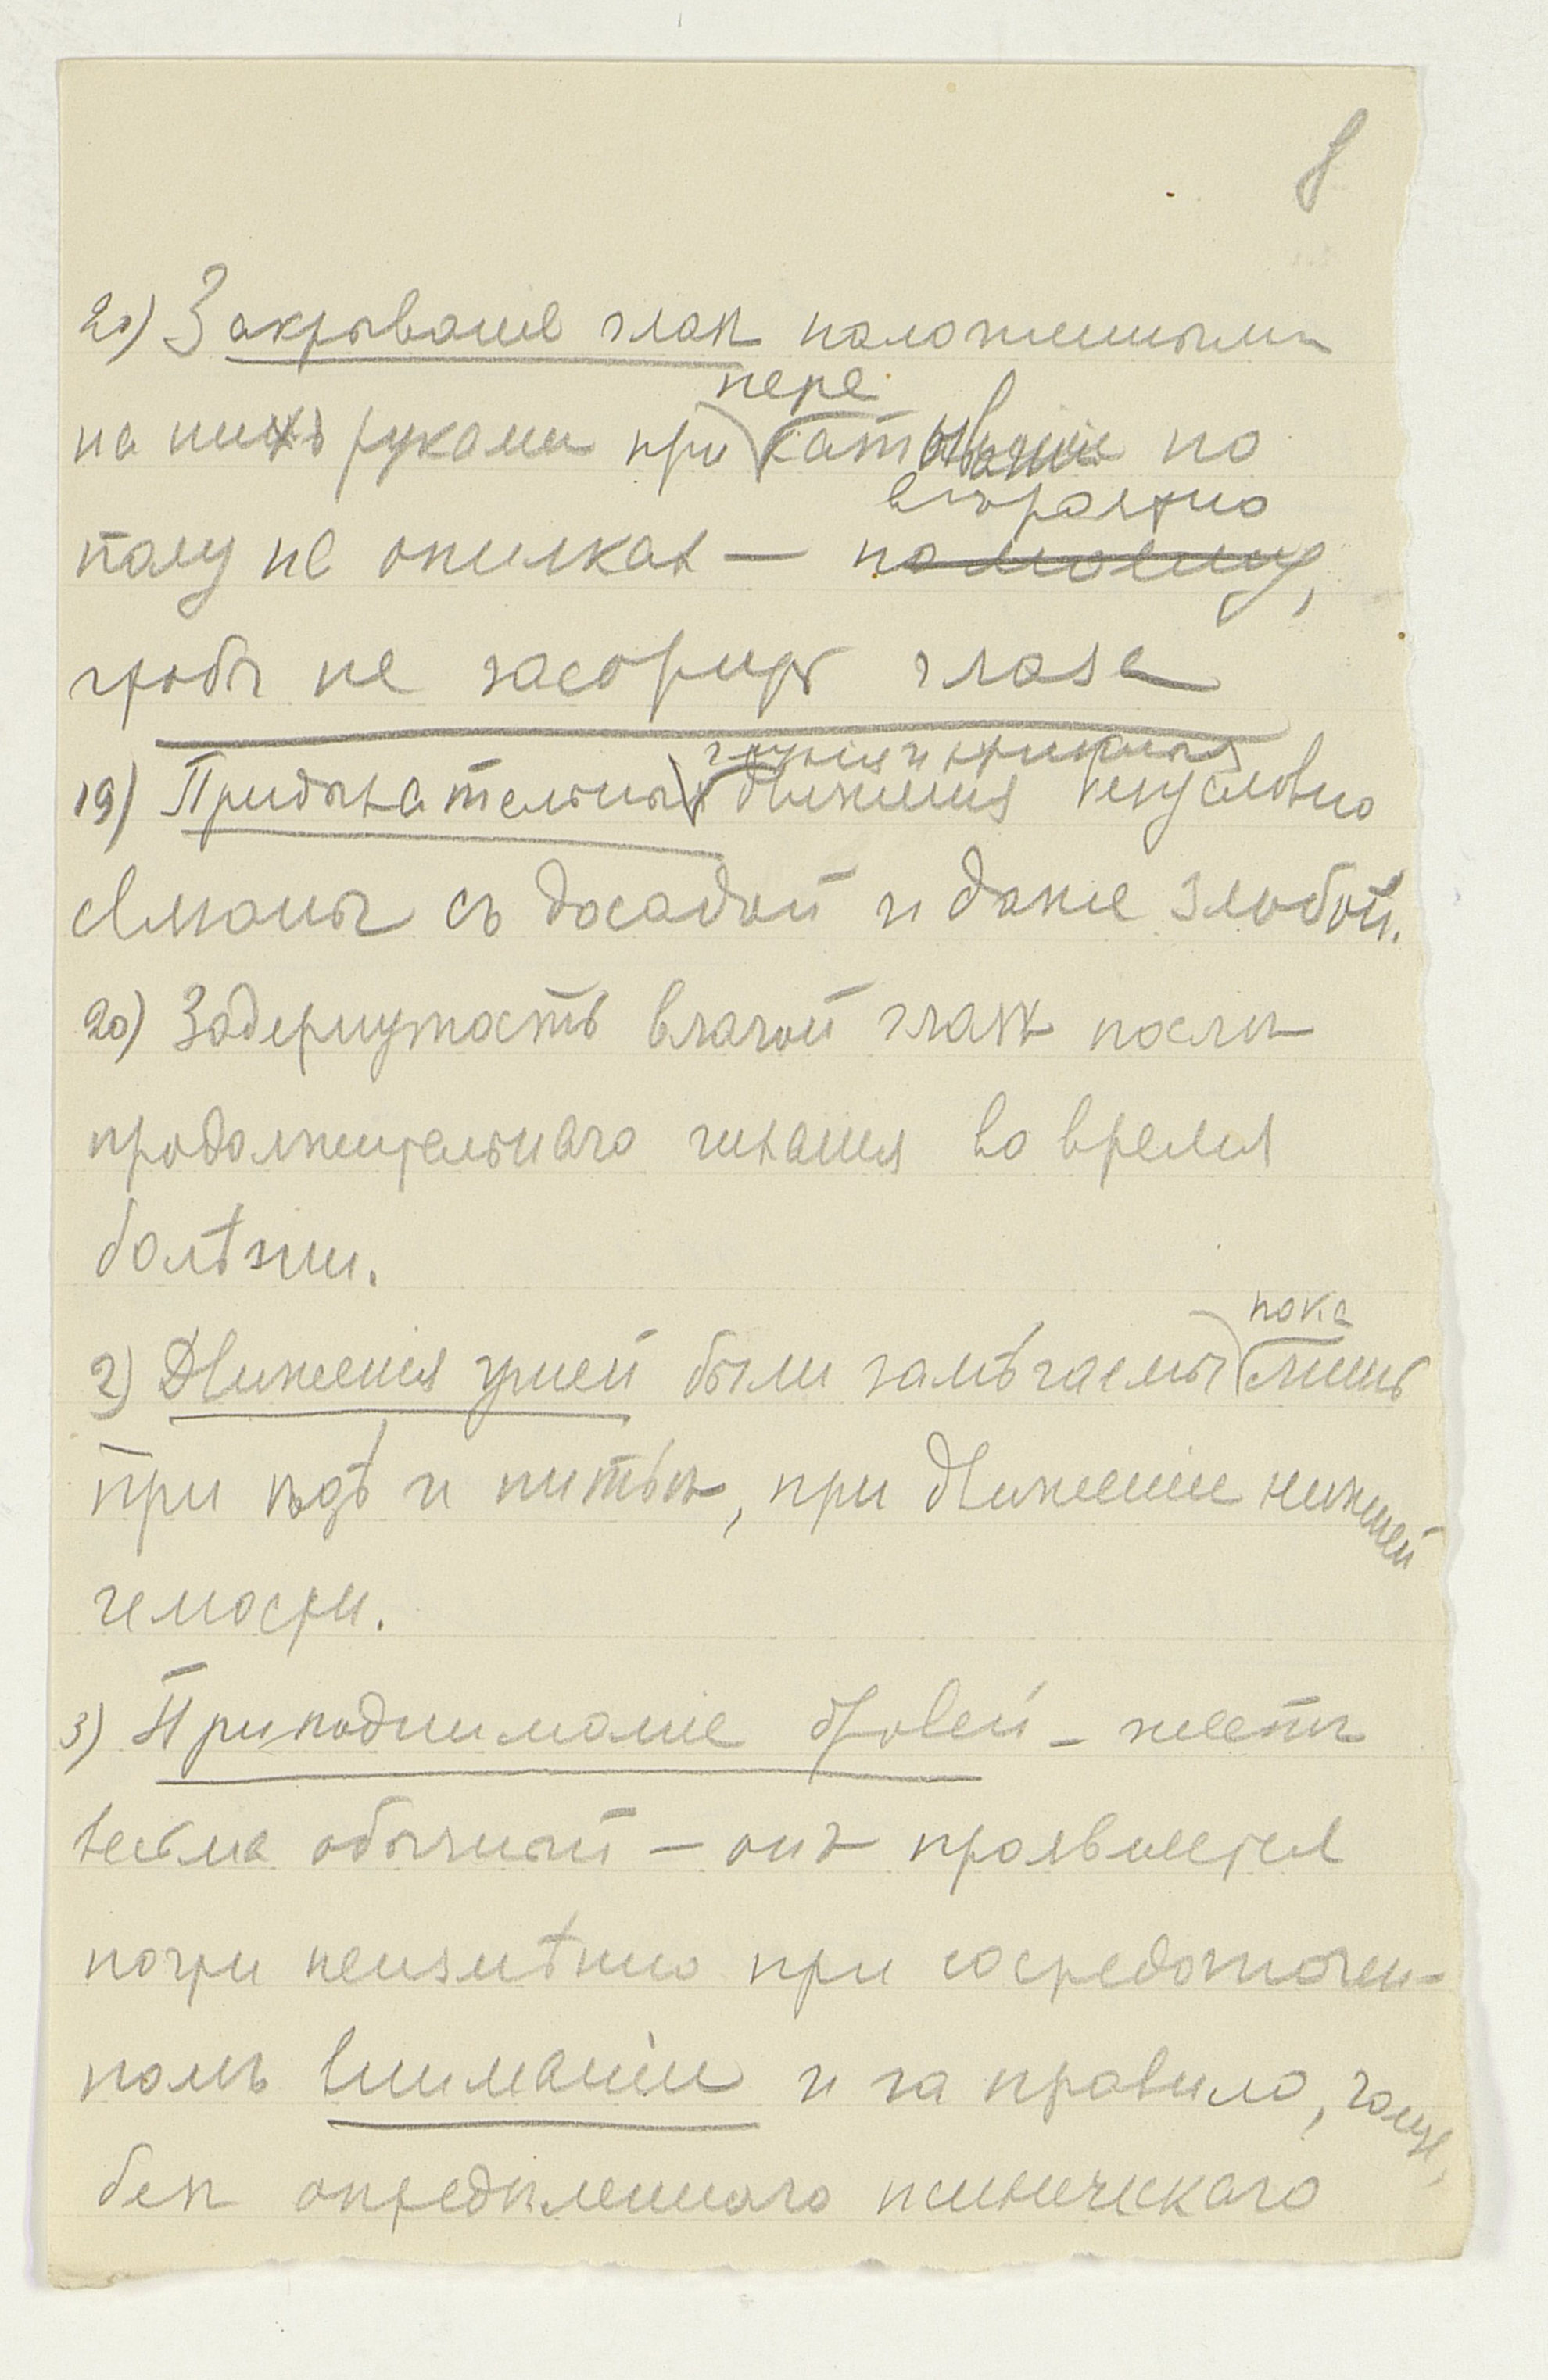 8
20) Закрыванiе глазъ положенными
на нихъ руками при перекатыванiи по
полу не опилкахъ — вѣроятно по моему,
чтобъ не засорить глаза
19) Придыхательныя глухiя и хрипл движенiя безусловно
связаны съ досадой и даже злобой.
20) Задернутость влагой глазъ послѣ
продолжительнаго чиханiя во время
болѣзни.
2) Движенiя ушей были замѣчаемы пока лишь
при ѣдѣ и питьѣ, при движенiи нижней
челюсти.
3) Приподниманiе бровей – жестъ
весьма обычный – онъ проявляется
почти неизмѣнно при сосредоточен-
номъ вниманiи и за правило, чаще,
безъ опредѣленнаго психическаго